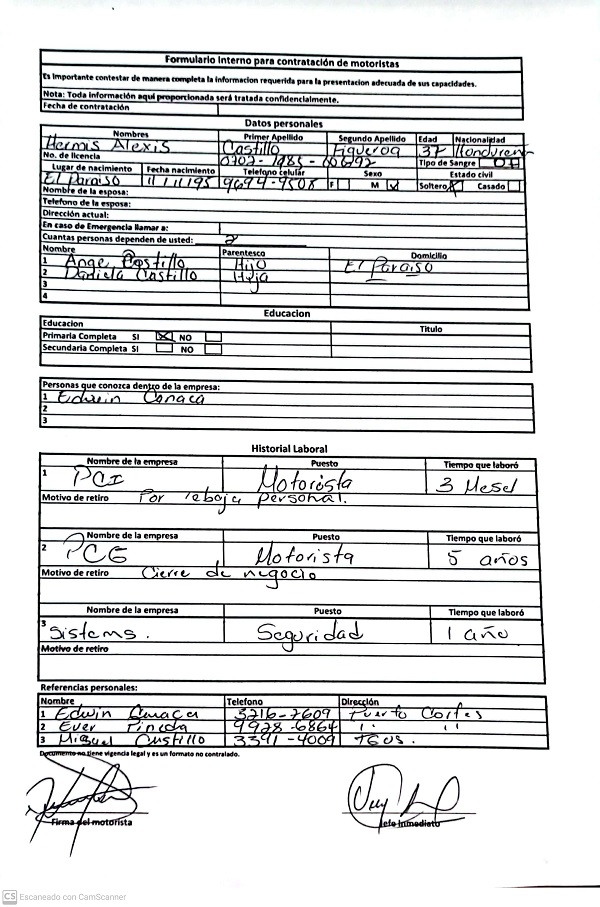 Formulario Interno para contratación de motoristas
Es importante contestar de manera completa la informacion requerida para la presentacion adecuada de sus capacidades.
Nota: Toda información aqui proporcionada será tratada confidencialmente.
Fecha de contratación
Datos personales
Nombres Primer Apellido Segundo Apellido Edad Nacionalidad
Hermis Alexis Castillo Figueroa 37 Hondureña
No. de licencia 0702-1985-00692 Tipo de Sangre OH
Lugar de nacimiento Fecha nacimiento Telefono celular Sexo Estado civil
El Paraiso 9694-9508 F M Soltero Casado
Nombre de la esposa:
Telefono de la esposa:
Dirección actual:
En caso de Emergencia llamar a:
Cuantas personas dependen de usted: 2
Nombre Parentesco Domicilio
1 Ange Castillo Hijo El Paraiso
2 Daniela Castillo Hija
3
4
Educacion
Educacion Titulo
Primaria Completa SI NO
Secundaria Completa SI NO
Personas que conozca dentro de la empresa:
1 Edwin Canaca
2
3
Historial Laboral
Nombre de la empresa Puesto Tiempo que laboró
1 PCI Motorista 3 Meses
Motivo de retiro Por rebaja personal.
Nombre de la empresa Puesto Tiempo que laboró
2 PCG Motorista 5 años
Motivo de retiro Cierre de negocio
Nombre de la empresa Puesto Tiempo que laboró
3 Sistems. Seguridad 1 año
Motivo de retiro
Referencias personales:
Nombre Telefono Dirección
1 Edwin Canaca 3216-7609 Puerto Cortes
2 Ever Pineda 9928-6864 " "
3 Miguel Castillo 3391-4009 TGUS.
Documento no tiene vigencia legal y es un formato no controlado.
Firma del motorista Jefe Inmediato
CS Escaneado con CamScanner